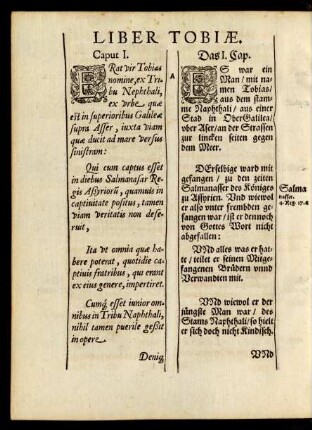 LIBER TOBIÆ.
Caput I.
ERat vir Tobias
nomine, ex Tri
bu Nephthali,
ex vrbe, quæ
est in superioribus Galileæ
supra Asser, iuxta viam
quæ ducit ad mare versus
sinistram:
Qui cum captus esset
in diebus Salmanasar Re-
gis Assyriorũ, quamuis in
captiuitate positus, tamen
viam veritatis non dese-
ruit,
Ita vt omnia quæ ha-
bere poterat, quotidie cap-
tiuis fratribus, qui erant
ex eius genere, impertiret.
Cumq́ esset iunior om-
nibus in Tribu Naphthali,
nihil tamen puerile gessit
in opere.
Deniq́
A
Das I. Cap.
ES war ein
Man / mit na-
men Tobias /
aus dem stam-
me Naphthali / aus einer
Stad in OberGalilea /
vber Aser / an der Strassen
zur lincken seiten gegen
dem Meer.
DErselbige ward mit
gefangen / zu den zeiten
Salmanasser des Königes
zu Assyrien. Vnd wiewol
er also vnter frembden ge-
fangen war / ist er dennoch
von Gottes Wort nicht
abgefallen:
VNd alles was er hat-
te / teilet er seinen Mitge-
fangenen Brüdern vnnd
Verwandten mit.
VNd wiewol er der
jüngste Man war / des
Stams Naphthali / so hielt
er sich doch nicht Kindisch.
VNd
Salma
nasser.
4. Reg. 17. &